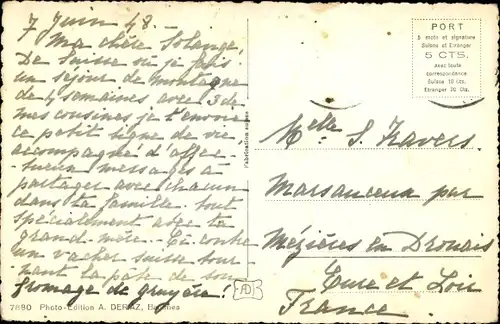 7 Juin 48.
Ma chère Solange,
De Suisse où je fais
un séjour de montagne
de 4 semaines avec 3 de
mes cousines je t'envoie
ce petit signe de vie
accompagné d'affec-
tueux messages à
partager avec chacun
dans la famille. tout
spécialement avec ta
grand-mère. Ci contre
un vacher suisse tour-
nant la pâte de son
fromage de gruyère!
7890 Photo-Edition A. DERIAZ, Baulmes
Fabrication suisse
PORT
5 mots et signature
Suisse et Etranger
5 CTS.
Avec toute
correspondance
Suisse 10 Cts.
Etranger 20 Cts.
Melle S. Travers.
Marsauceux par
Mézières en Drouais
Eure et Loir
France.
AD